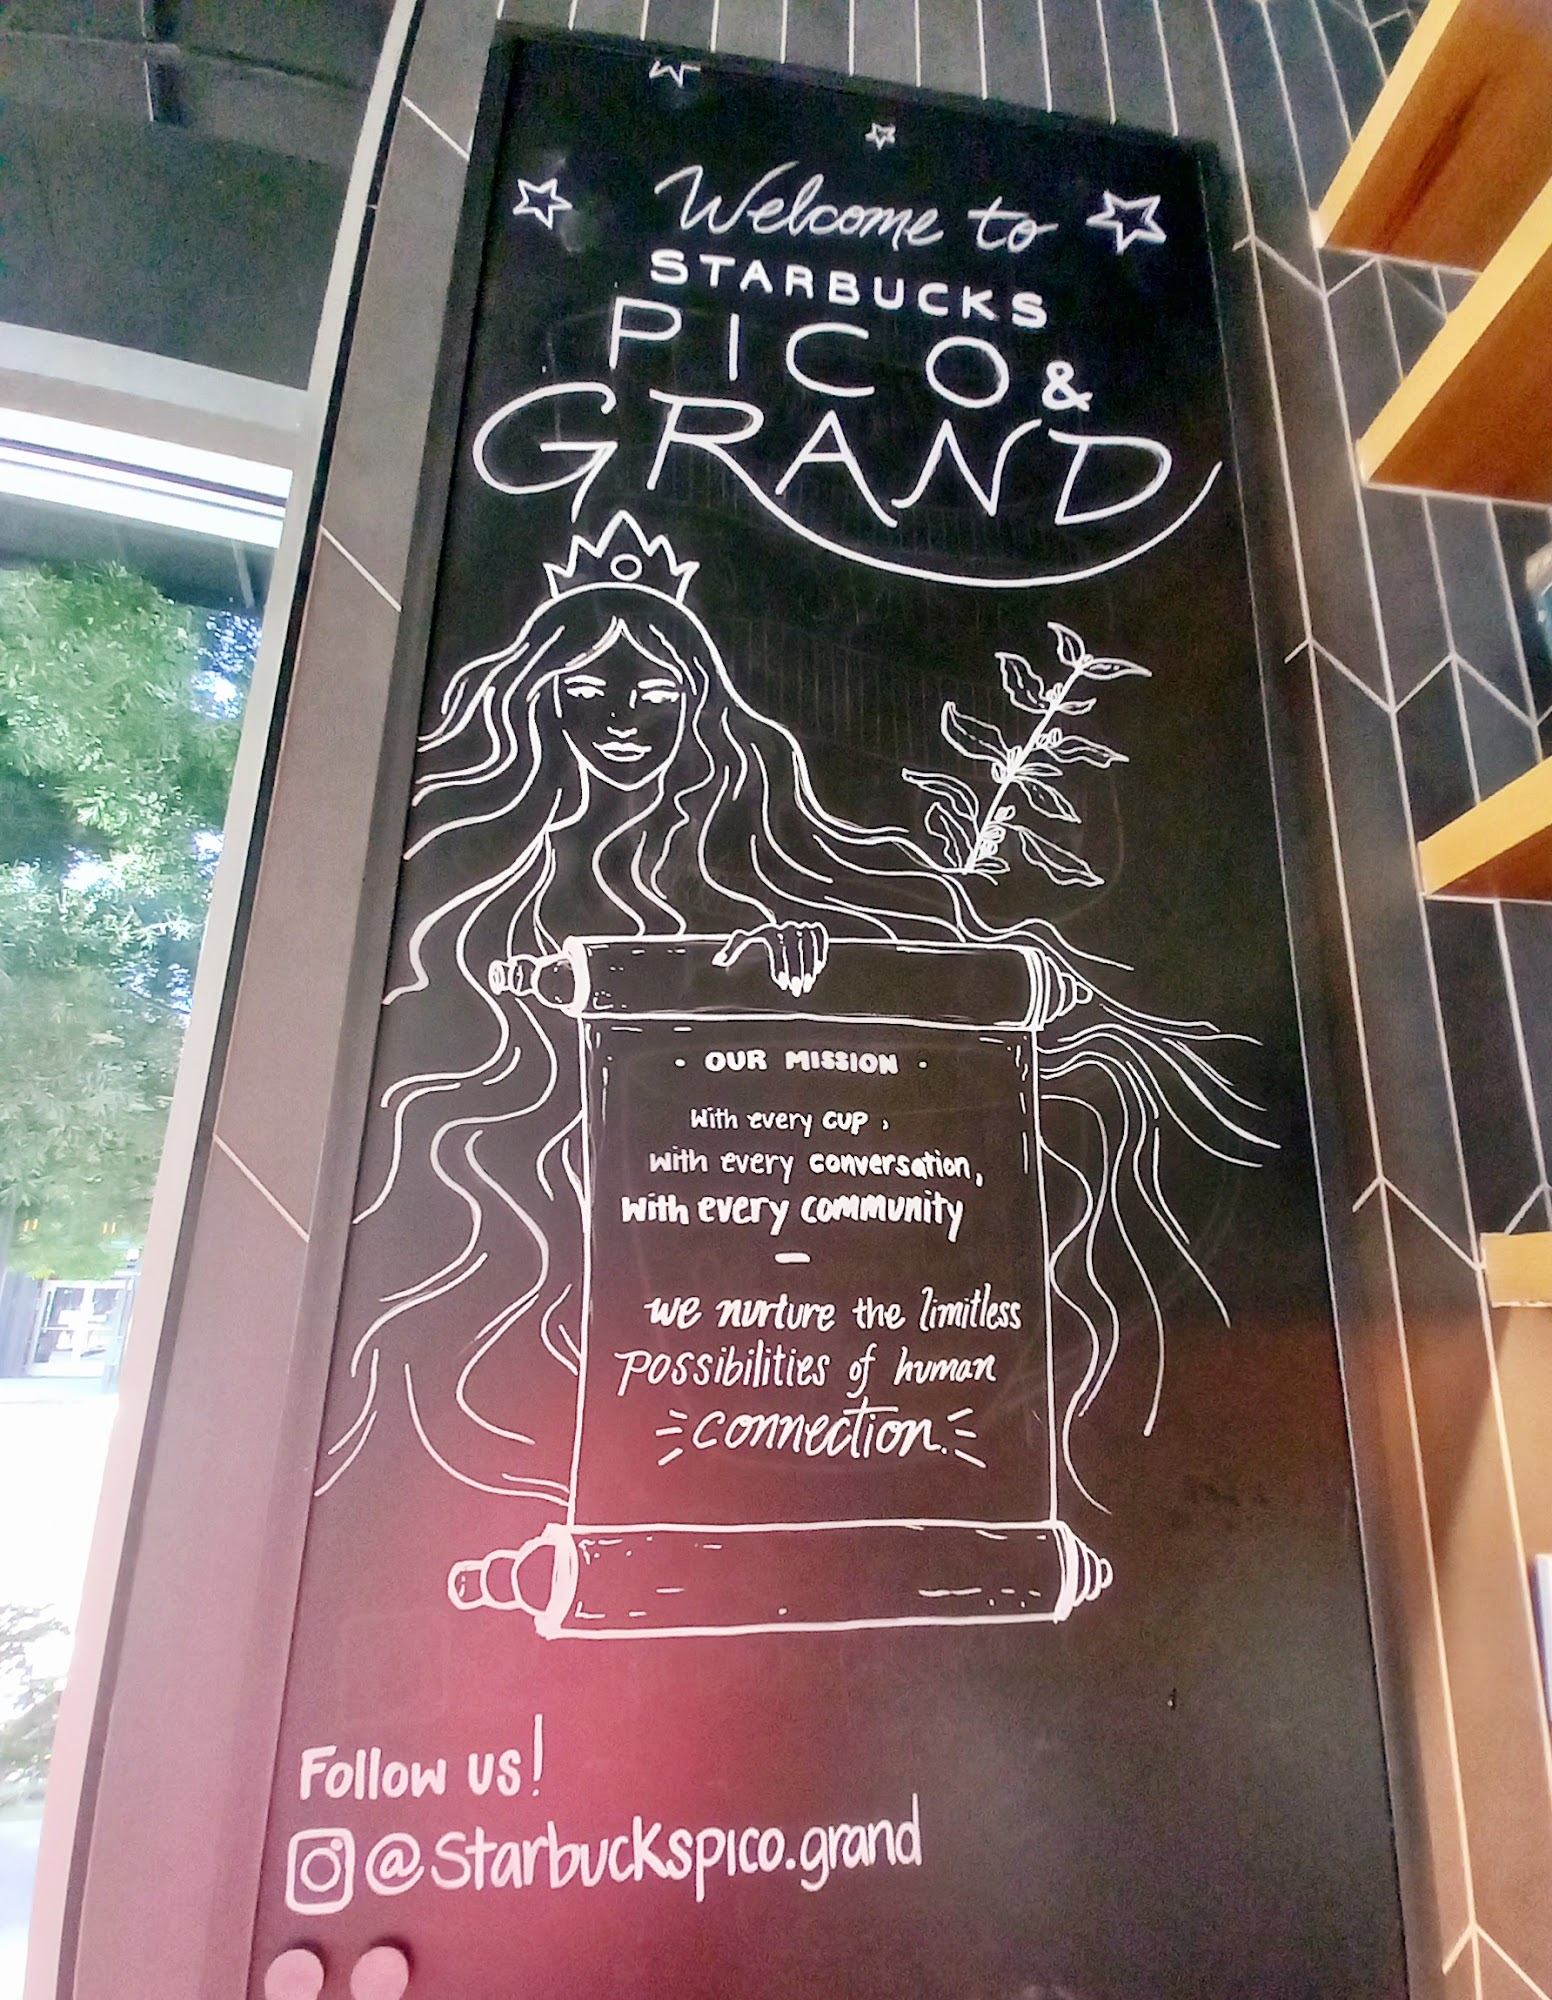 Welcome to
STARBUCKS
PICO &
GRAND
· OUR MISSION ·
With every cup,
with every conversation,
with every community
—
we nurture the limitless
possibilities of human
connection.
Follow us!
@starbuckspico.grand